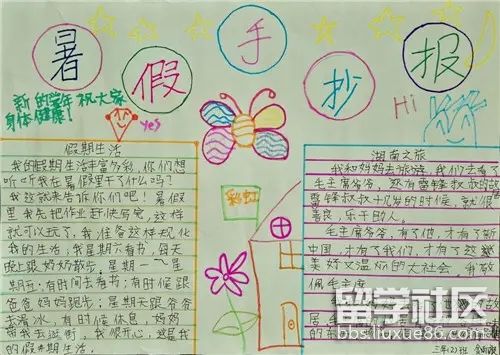 暑假手抄报
新的学年祝大家
身体健康!
yes
Hi
假期生活
我的假期生活丰富多彩,你们想
听听我在暑假里干了什么吗?
我这就来告诉你们吧!暑假
里我先把作业赶快写完,这样
就可以玩了,我准备这样规化
我的生活:我星期六看书,每天
晚上跟奶奶散步,星期一~星
期五:有时间去看书;有时候跟
爸爸妈妈跑步;星期天跟爸爸
去滑冰,有时候休息,妈妈
带我去逛街,我很开心,这是我
的假期生活。
彩虹
湖南之旅
我和妈妈去旅游,我们去看了
毛主席爷爷,还有雷锋叔叔的
雷锋叔叔十几岁的时候,就很
善良,乐于助人。
毛主席爷爷,有了他,才有了新
中国,才有了我们,才有了这
美好又温的大社会。我
佩毛主席
居
的
三年(2)班
留学社区
bbs.liuxue86.com